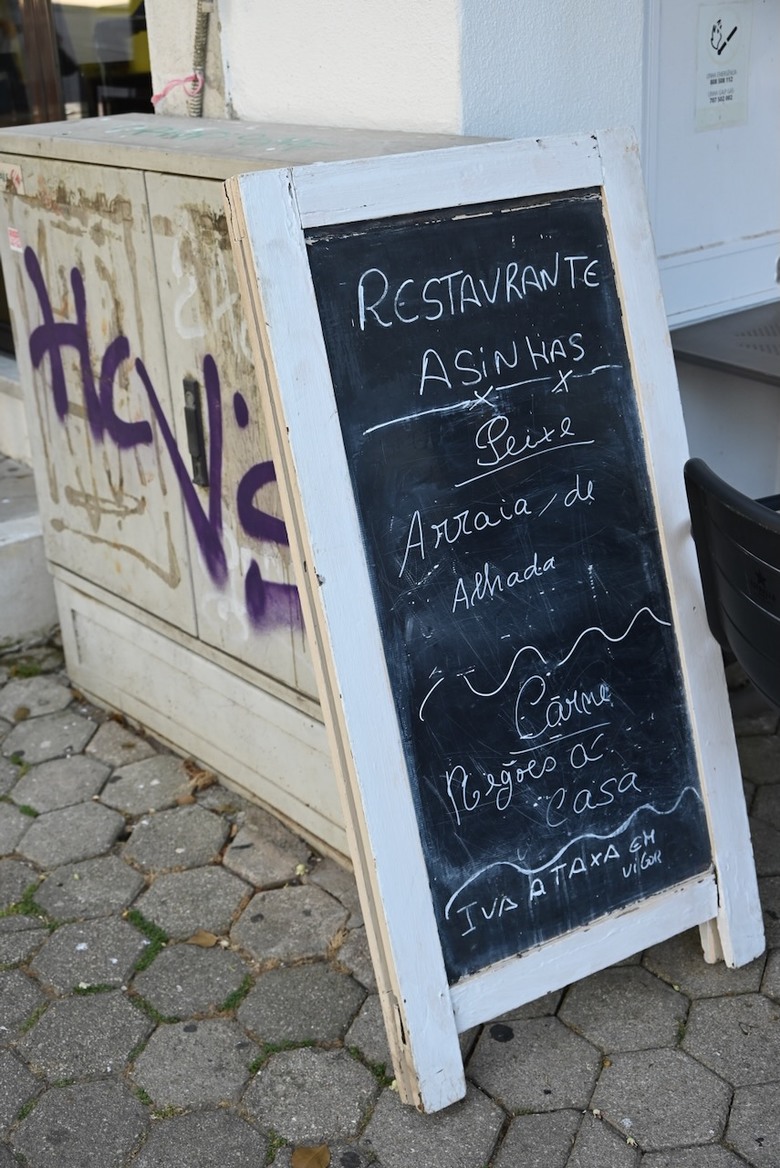 RESTAURANTE
ASINHAS
Peixe
Arraia de
Alhada
Carne
à
casa
IVA A TAXA EM
VIGOR
HcVis